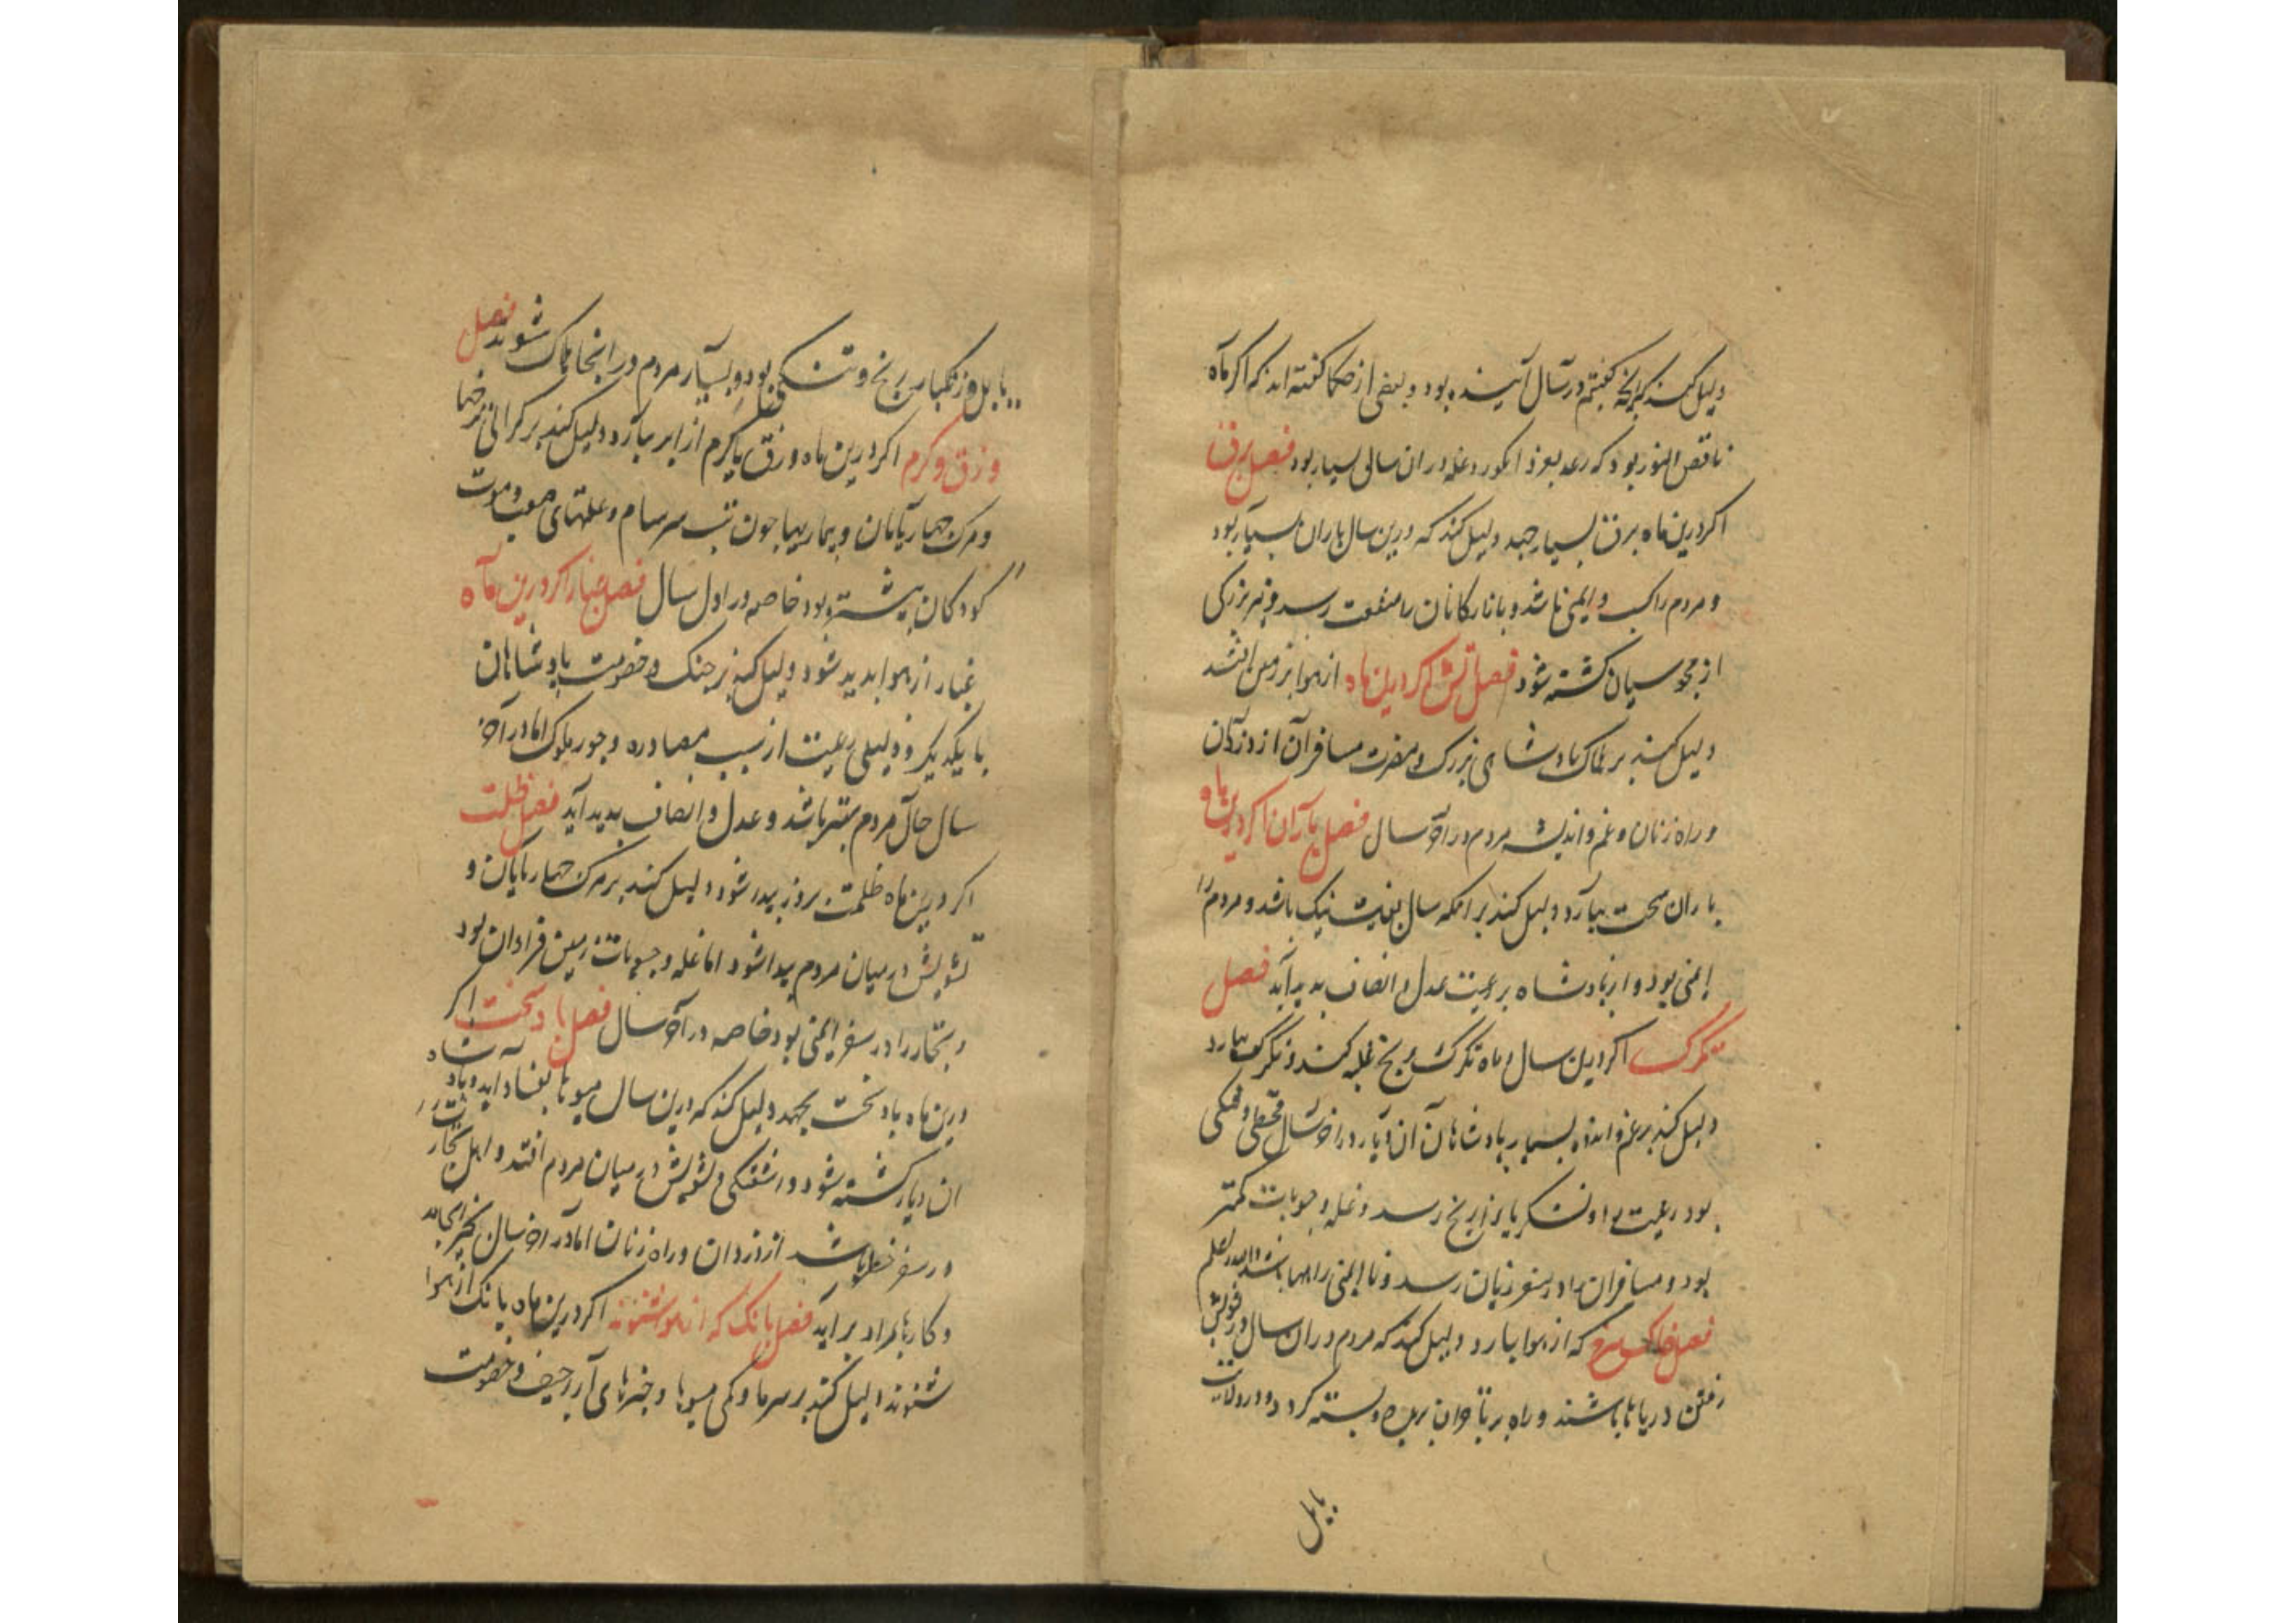 دلیل کند که آنچه گفتیم در سال آینده بود و بعضی از حکما گفته اند که اگر ماه
ناقص النور بود که رعد بغرد انگور و غله در ان سال بسیار بود فصل برق
اکر درین ماه برق بسیار جهد دلیل کند که درین سال باران بسیار بود
و مردم را کسب و ایمنی باشد و بازارکانان را منفعت رسد و نیز بزرکی
از مجوسیان کشته شود فصل آتش اکر درین ماه از هوا بر زمین آتش
دلیل کند بر هلاک پادشاهی بزرک و مضرت مسافران از دزدان
و راه زنان و غم و اندیشه مردم در آخر سال فصل باران اکر درین ماه
باران سخت ببارد دلیل کند بر آنکه سال بغایت نیک باشد و مردم را
ایمنی بود و از پادشاه بر رعیت عدل و انصاف پدید آید فصل
تکرک اکر درین سال و ماه تکرک و یخ غلبه کند و تکرک ببارد
دلیل کند بر غم و اندوه بسیار پادشاهان آن دیار و در اخر سال قحطی و تنکی
بود رعیت را و لشکریانرا رنج رسد و غله و حبوبات کمتر
بود و مسافران را در سفر زیان رسد و نا ایمنی راهها باشد
فصل خاک سرخ که از هوا ببارد دلیل کند که مردم در ان سال در
رفتن دریاها باشند و راه بر بسته کردد و در ولایت
بابل
بابل و زنکبار رنج و تنکی بود و بسیار مردم در انجا هلاک شوند فصل
وزق و کرم اکر درین ماه وزق یا کرم از ابر ببارد دلیل کند بر کرانی نرخها
و مرک چهارپایان و بیماریها چون تب سرسام و علتهای صعب و موت
کودکان بیشتر بود خاصه در اول سال فصل غبار اکر درین ماه
غبار از هوا پدید شود دلیل کند بر جنک و خصومت پادشاهان
با یکدیکر و ذلیلی رعیت از سبب مصادره و جور ملوک اما در آخر
سال حال مردم بهتر باشد و عدل و انصاف پدید آید فصل ظلمت
اکر درین ماه ظلمت بروز پیدا شود دلیل کند بر مرک چهارپایان و
تشویش در میان مردم پیدا شود اما غله و حبوبات زمین فراوان بود
و تجار را در سفر ایمنی بود خاصه در آخر سال فصل باد سخت اکر
درین ماه باد سخت بجهد دلیل کند که درین سال میوها بفساد آید و پادشاه
ان دیار کشته شود و آشفتکی و تشویش در میان مردم افتد و اهل تجارت را
در سفر خطر باشد از دزدان و راه زنان اما در اخر سال بخیر انجامد
و کارها بمراد بر آید فصل بانک که از هوا شنوند اکر درین ماه بانک از هوا
شنوند دلیل کند بر سرما و کمی میوها و خبرهای اراجیف و خصومت